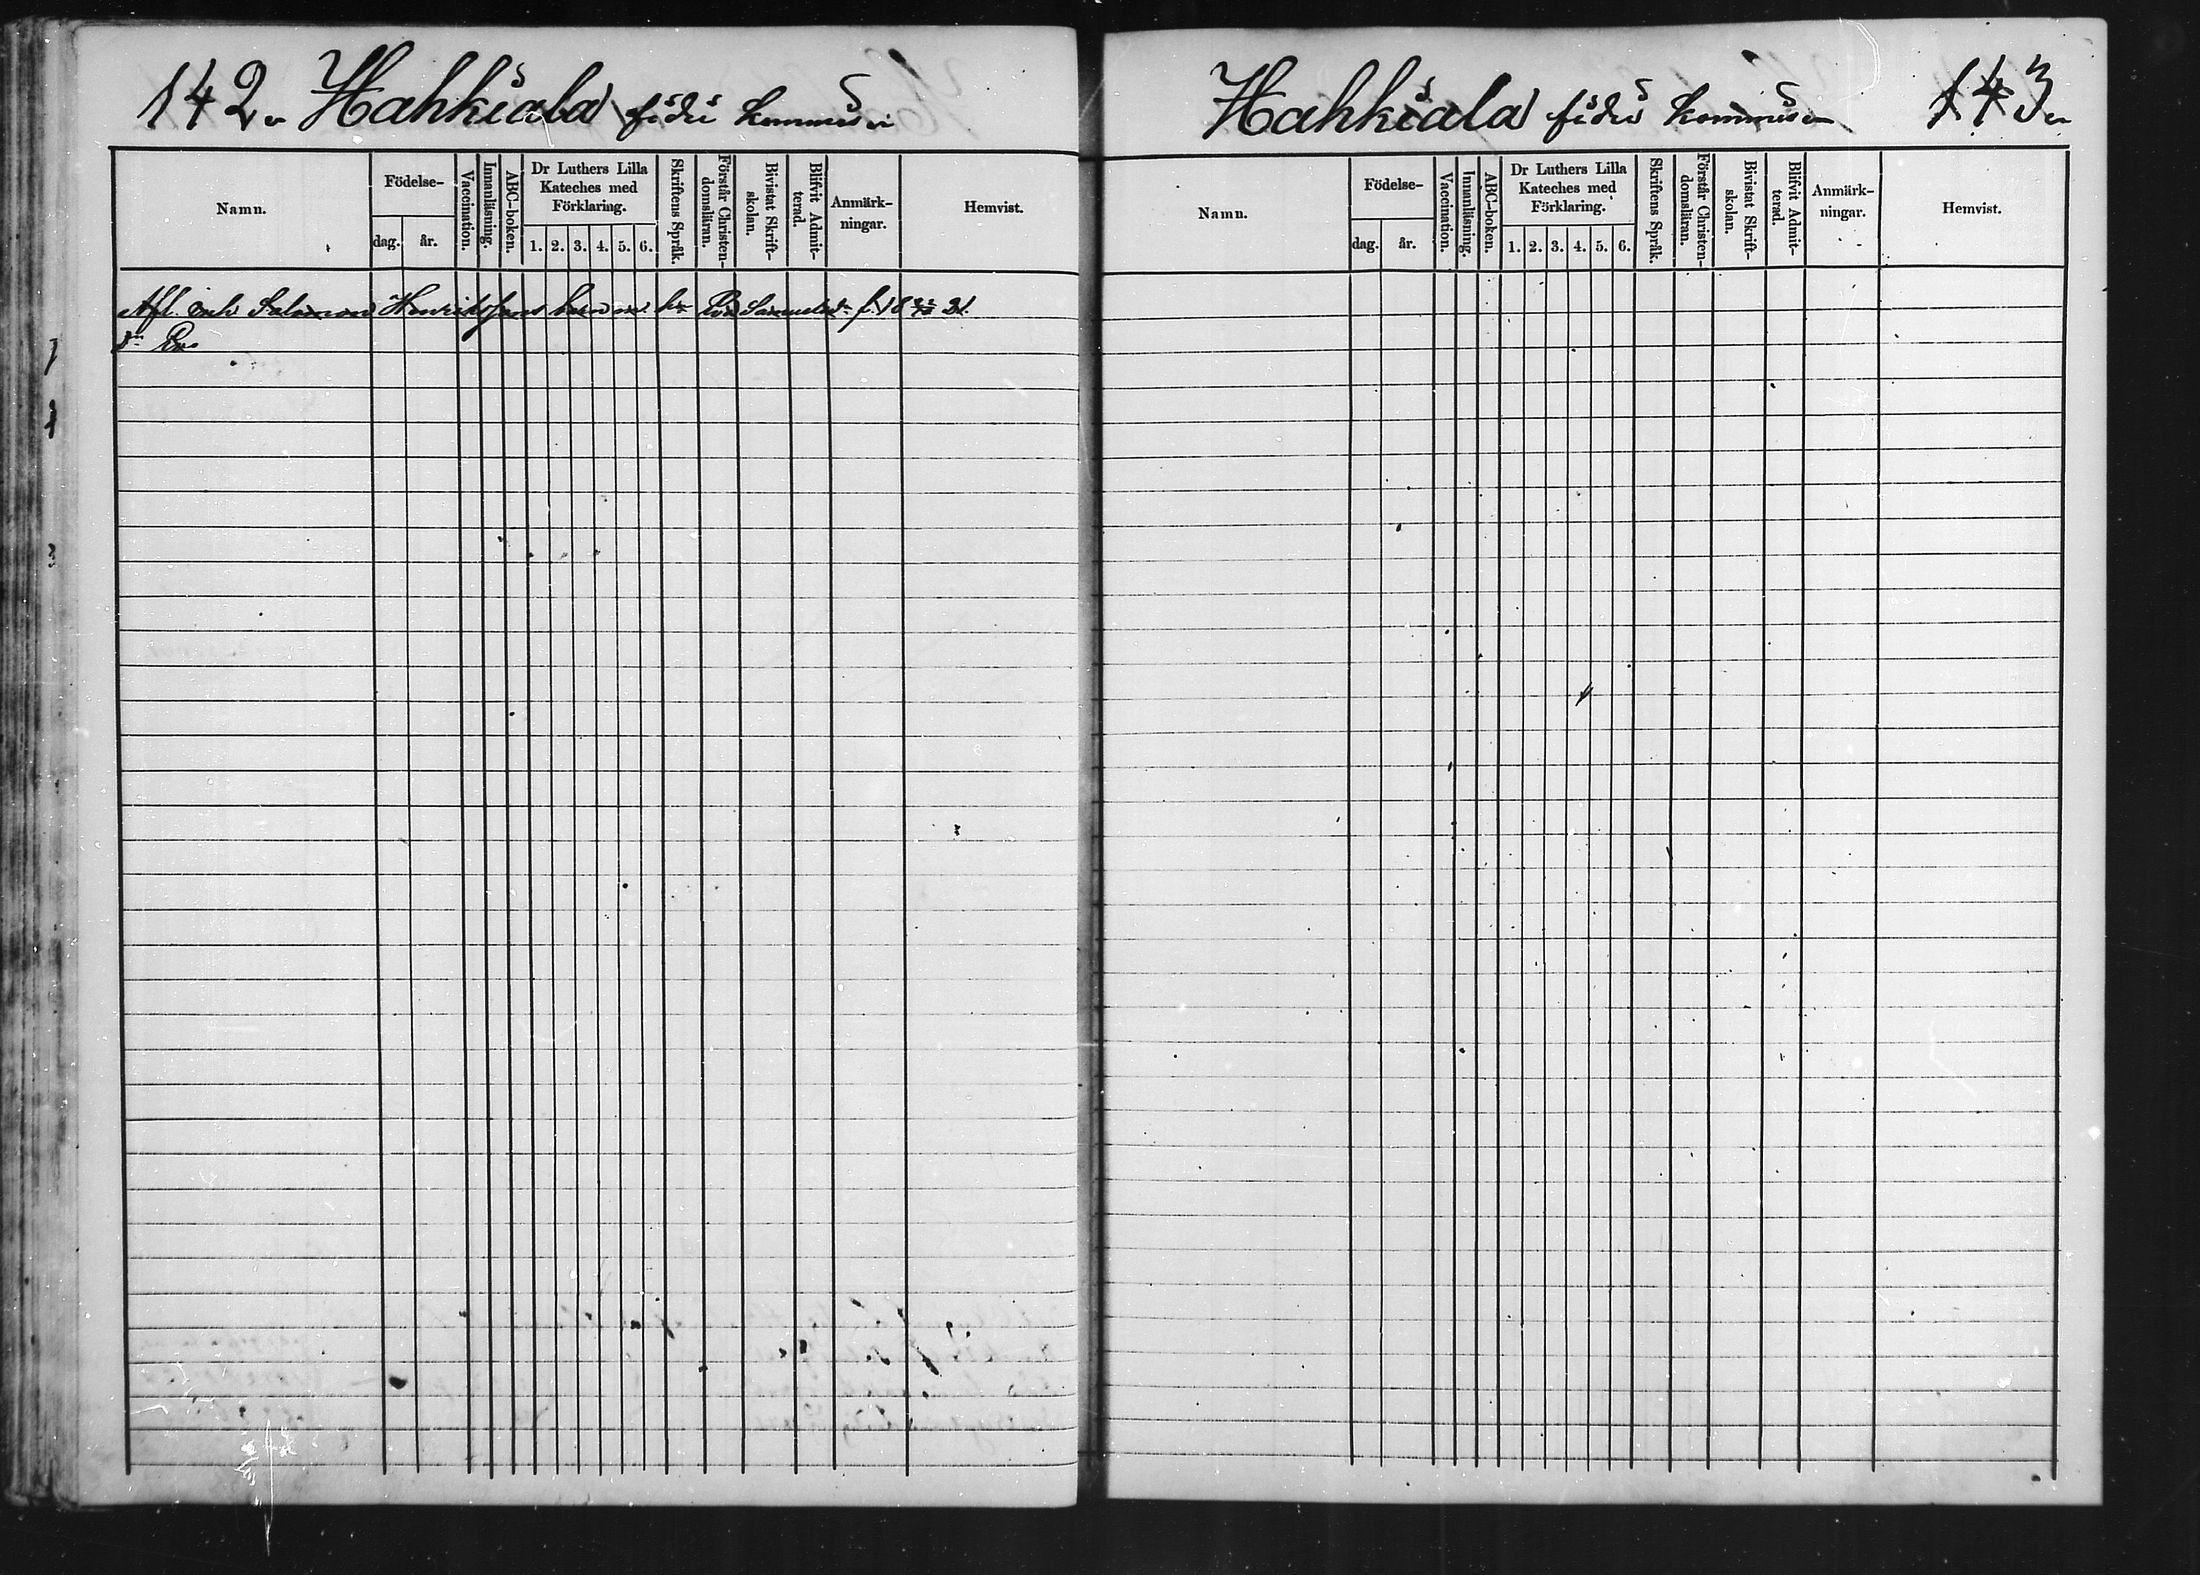 142. Hahkiala
Namn.
Födelse-
dag.
år.
Vaccination.
Innanläsning.
ABC-boken.
Dr Luthers Lilla
Kateches med
Förklaring.
1. 2. 3. 4. 5. 6.
Skriftens Språk.
Förstår Christen-
domsläran.
Bivistat Skrift-
skolan.
Blifvit Admit-
terad.
Anmärk-
ningar.
Hemvist.
Afl. Salomon Henrikssons barn Samuelsd. f. 18
Hahkiala 143
Namn.
Födelse-
dag.
år.
Vaccination.
Innanläsning.
ABC-boken.
Dr Luthers Lilla
Kateches med
Förklaring.
1. 2. 3. 4. 5. 6.
Skriftens Språk.
Förstår Christen-
domsläran.
Bivistat Skrift-
skolan.
Blifvit Admit-
terad.
Anmärk-
ningar.
Hemvist.